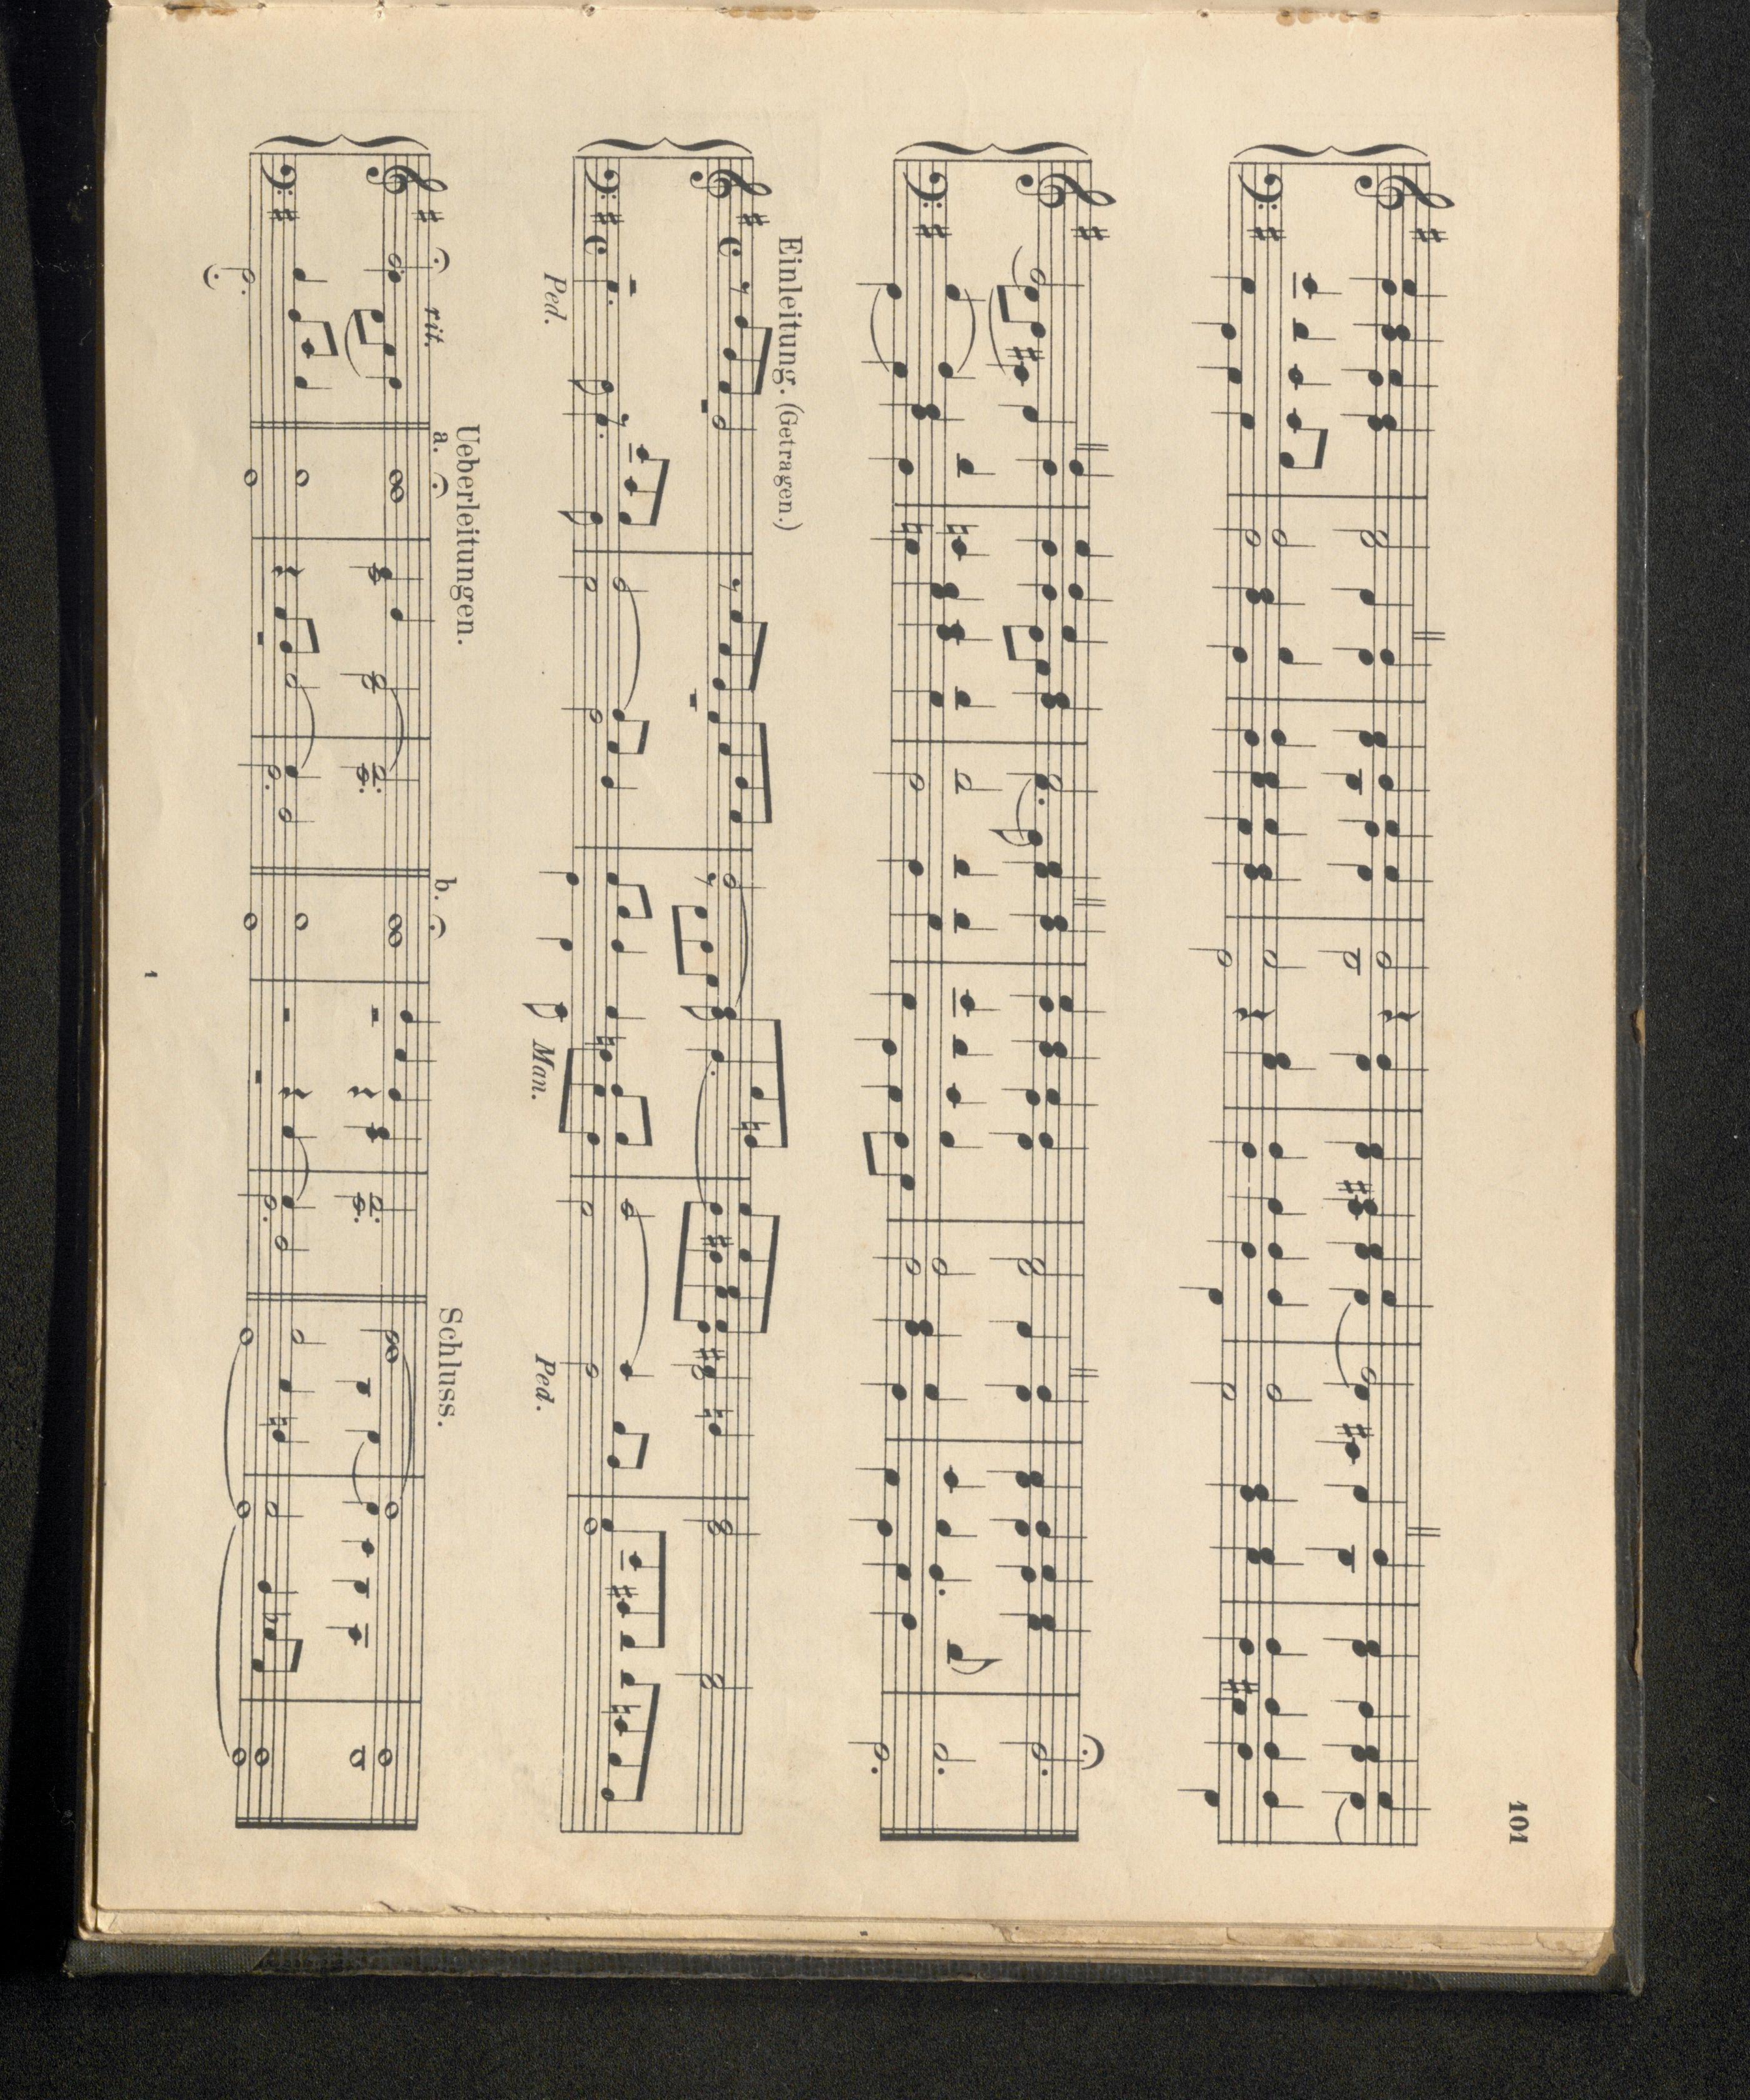 101
Einleitung. (Getragen.)
Ped.
Man.
Ped.
rit.
Ueberleitungen.
a.
b.
Schluss.